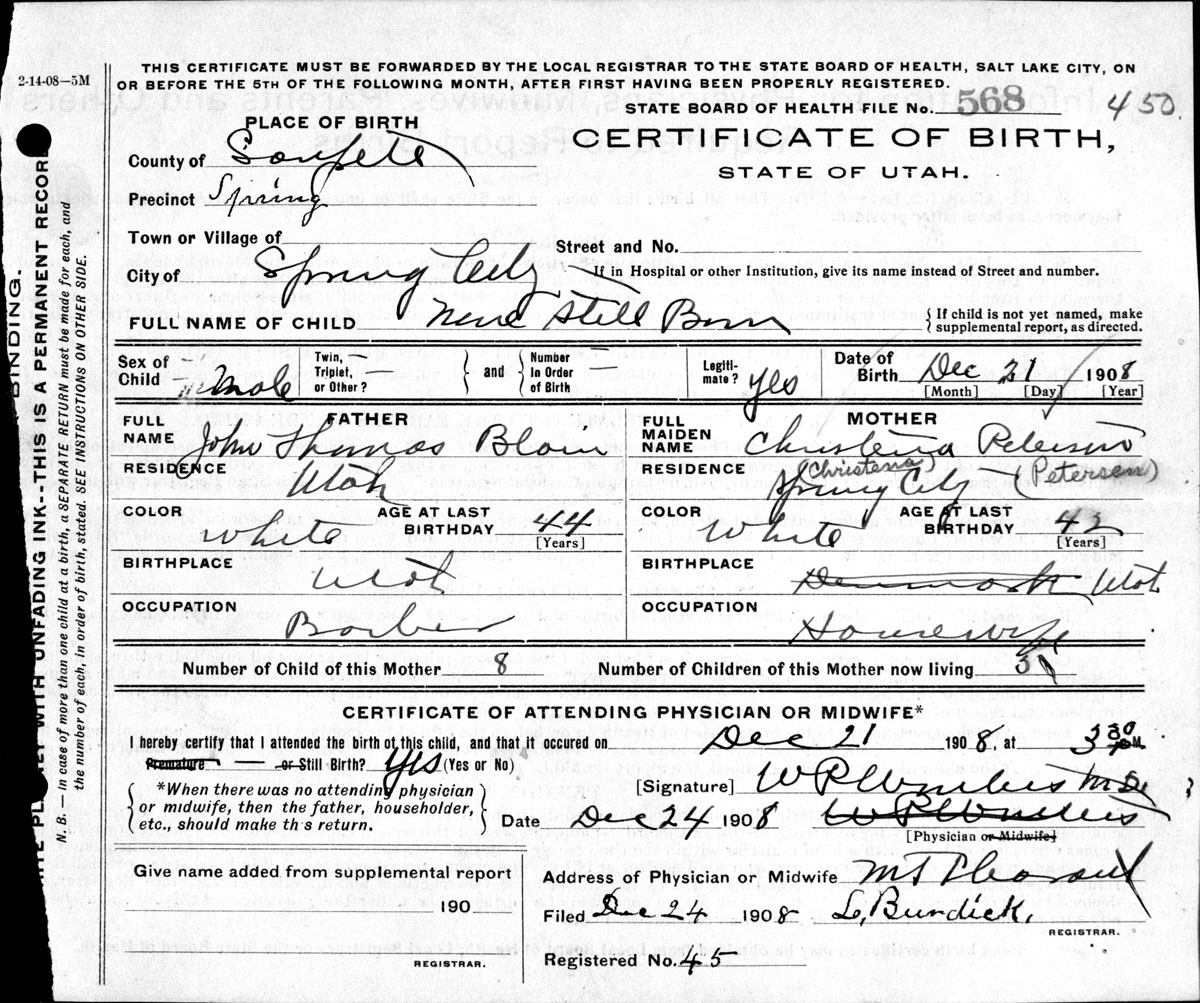 2-14-08—5M
THIS CERTIFICATE MUST BE FORWARDED BY THE LOCAL REGISTRAR TO THE STATE BOARD OF HEALTH, SALT LAKE CITY, ON
OR BEFORE THE 5TH OF THE FOLLOWING MONTH, AFTER FIRST HAVING BEEN PROPERLY REGISTERED.
STATE BOARD OF HEALTH FILE No. 568 450.
PLACE OF BIRTH
CERTIFICATE OF BIRTH,
STATE OF UTAH.
County of Sanpete
Precinct Spring
Town or Village of
Street and No.
City of Spring City
If in Hospital or other Institution, give its name instead of Street and number.
FULL NAME OF CHILD None Still Born
{ If child is not yet named, make
supplemental report, as directed.
Sex of Child Male
Twin, Triplet, or Other? — } and { Number in Order of Birth —
Legiti-mate? yes
Date of Birth Dec 21 1908
[Month] [Day] [Year]
FATHER
FULL NAME John Thomas Blain
MOTHER
FULL MAIDEN NAME Christena Peterson
RESIDENCE Utah
RESIDENCE (Christena) Spring City (Petersen)
COLOR White AGE AT LAST BIRTHDAY 44 [Years]
COLOR White AGE AT LAST BIRTHDAY [Years]
BIRTHPLACE Utah
BIRTHPLACE Denmark Utah
OCCUPATION Barber
OCCUPATION Housewife
Number of Child of this Mother 8
Number of Children of this Mother now living
CERTIFICATE OF ATTENDING PHYSICIAN OR MIDWIFE*
I hereby certify that I attended the birth of this child, and that it occured on Dec 21 1908, at 3 30 M.
Premature — or Still Birth? Yes (Yes or No)
{ *When there was no attending physician
or midwife, then the father, householder,
etc., should make this return. }
[Signature] W P M.D.
Date Dec 24 1908
[Physician or Midwife]
Give name added from supplemental report
190
REGISTRAR.
Address of Physician or Midwife Mt Pleasant
Filed Dec 24 1908 L. Burdick.
REGISTRAR.
Registered No. 45
BINDING.
PLAINLY WITH UNFADING INK--THIS IS A PERMANENT RECORD
N. B. — In case of more than one child at a birth, a SEPARATE RETURN must be made for each, and
the number of each, in order of birth, stated. SEE INSTRUCTIONS ON OTHER SIDE.